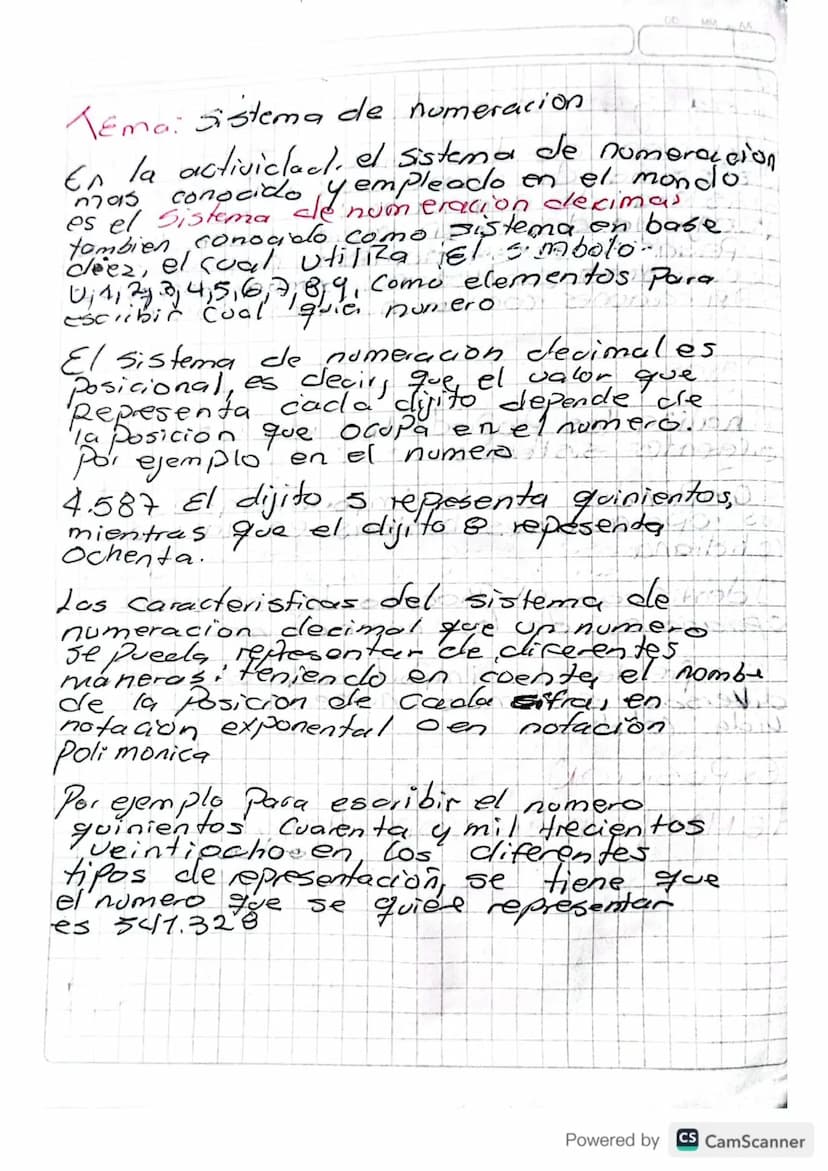 DD MM AA
Tema: sistema de numeracion
En la actividad. el sistema de numeracion
mas conocido y empleado en el mondo
es el sistema de numeracion decimas
tombien conocido como sistema en base
deez, el cual utiliza El simbolo
0,1,2,3,4,5,6,7,8,9, como elementos para
escribir cual quier numero
El sistema de numeracion decimal es
posicional, es decir, que el valor que
Representa cada dijito depende de
la posicion que ocupa en el numero.
Por ejemplo en el numero
4.587 El dijito 5 representa quinientos,
mientras que el dijito 8 represenda
Ochenta.
Las caracteristicas del sistema de
numeracion decimal que un numero
se pueda representar de dicerentes
maneras: teniendo en cuenta el nombre
de la posicion de cada sifra, en
notación exponental o en notación
Polimonica
Por ejemplo Para escribir el numero
quinientos cuarenta y mil trecientos
veintiocho en los diferentes
tipos de representación, se tiene que
el numero que se quiere representar
es 541.328
Powered by CS CamScanner